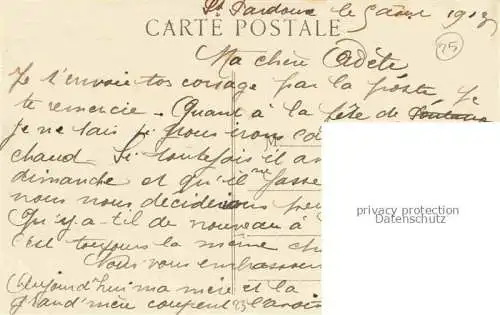 St Pardoux le 5 août 191
CARTE POSTALE
25
Ma chère Adèle
Je t'envoie tos corsage par la poste je
te remercie. Quant à la fête de
je ne sais si nous irons
chaud Si toutefois il
dimanche et qu'il ne fasse
nous nous déciderons
Qu'y a-til de nouveau à
C'est toujours la même
Nous vous embrassons
Aujourd'hui ma mère et la
grand'mère coupent
privacy protection
Datenschutz